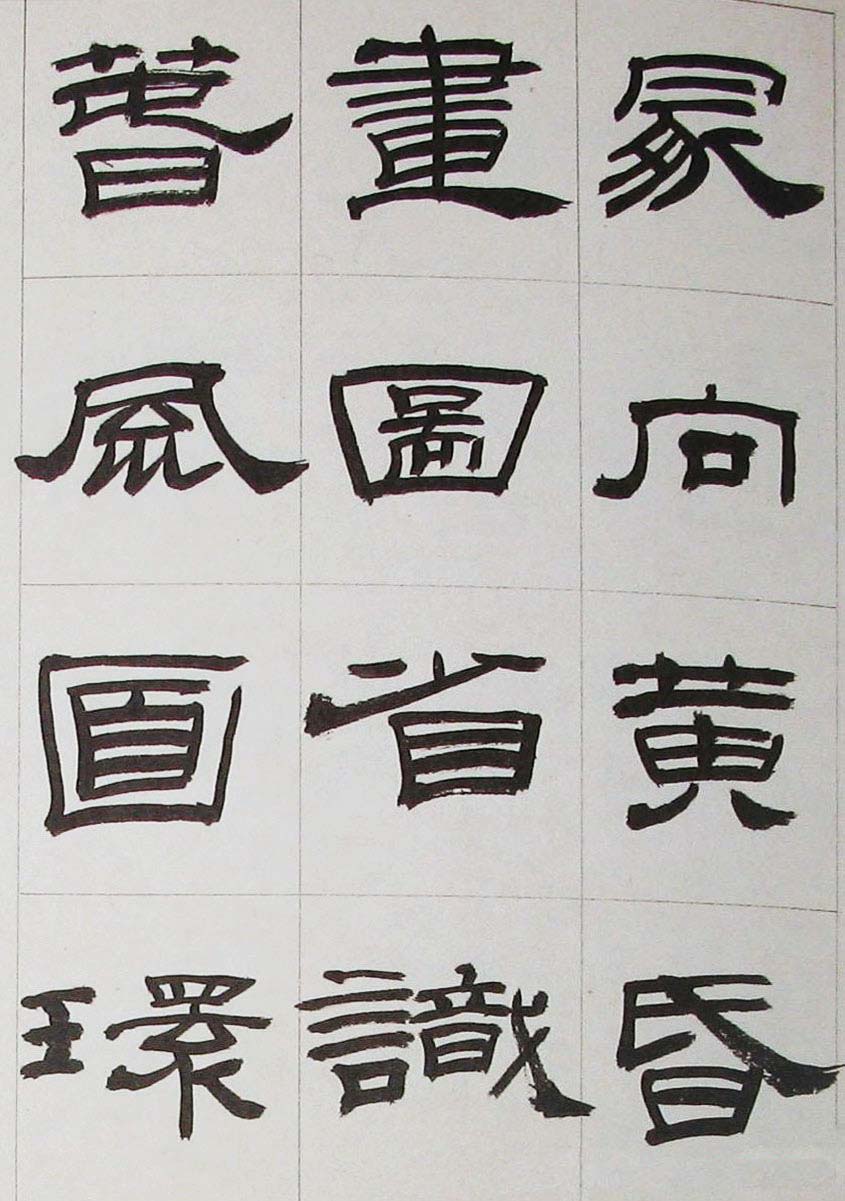 冢向黄昏
畫圖省識
萅風面環